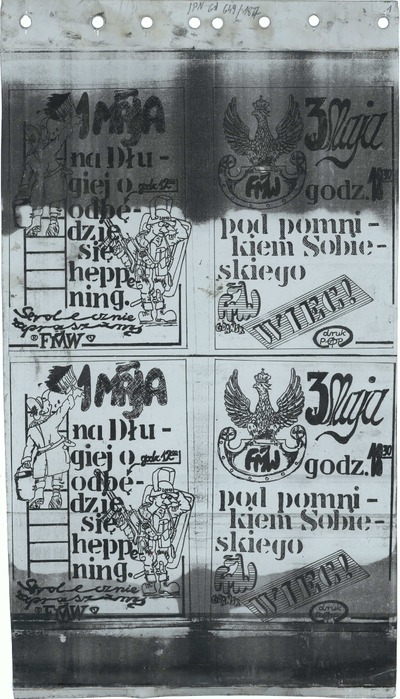 IPN Gd 649/187
1
1 MAJA
na Dłu -
giej o godz. 17:00
odbę-
dzie
się
heppe
ning.
Serdecznie
zapraszamy
FMW
3 Maja
FMW
godz. 18 30
pod pomni -
kiem Sobie -
skiego
FMW
WIEC!
druk
1 MAJA
na Dłu -
giej o godz. 17:00
odbę-
dzie
się
heppe
ning.
Serdecznie
zapraszamy
FMW
3 Maja
FMW
godz. 18 30
pod pomni -
kiem Sobie -
skiego
FMW
WIEC!
druk